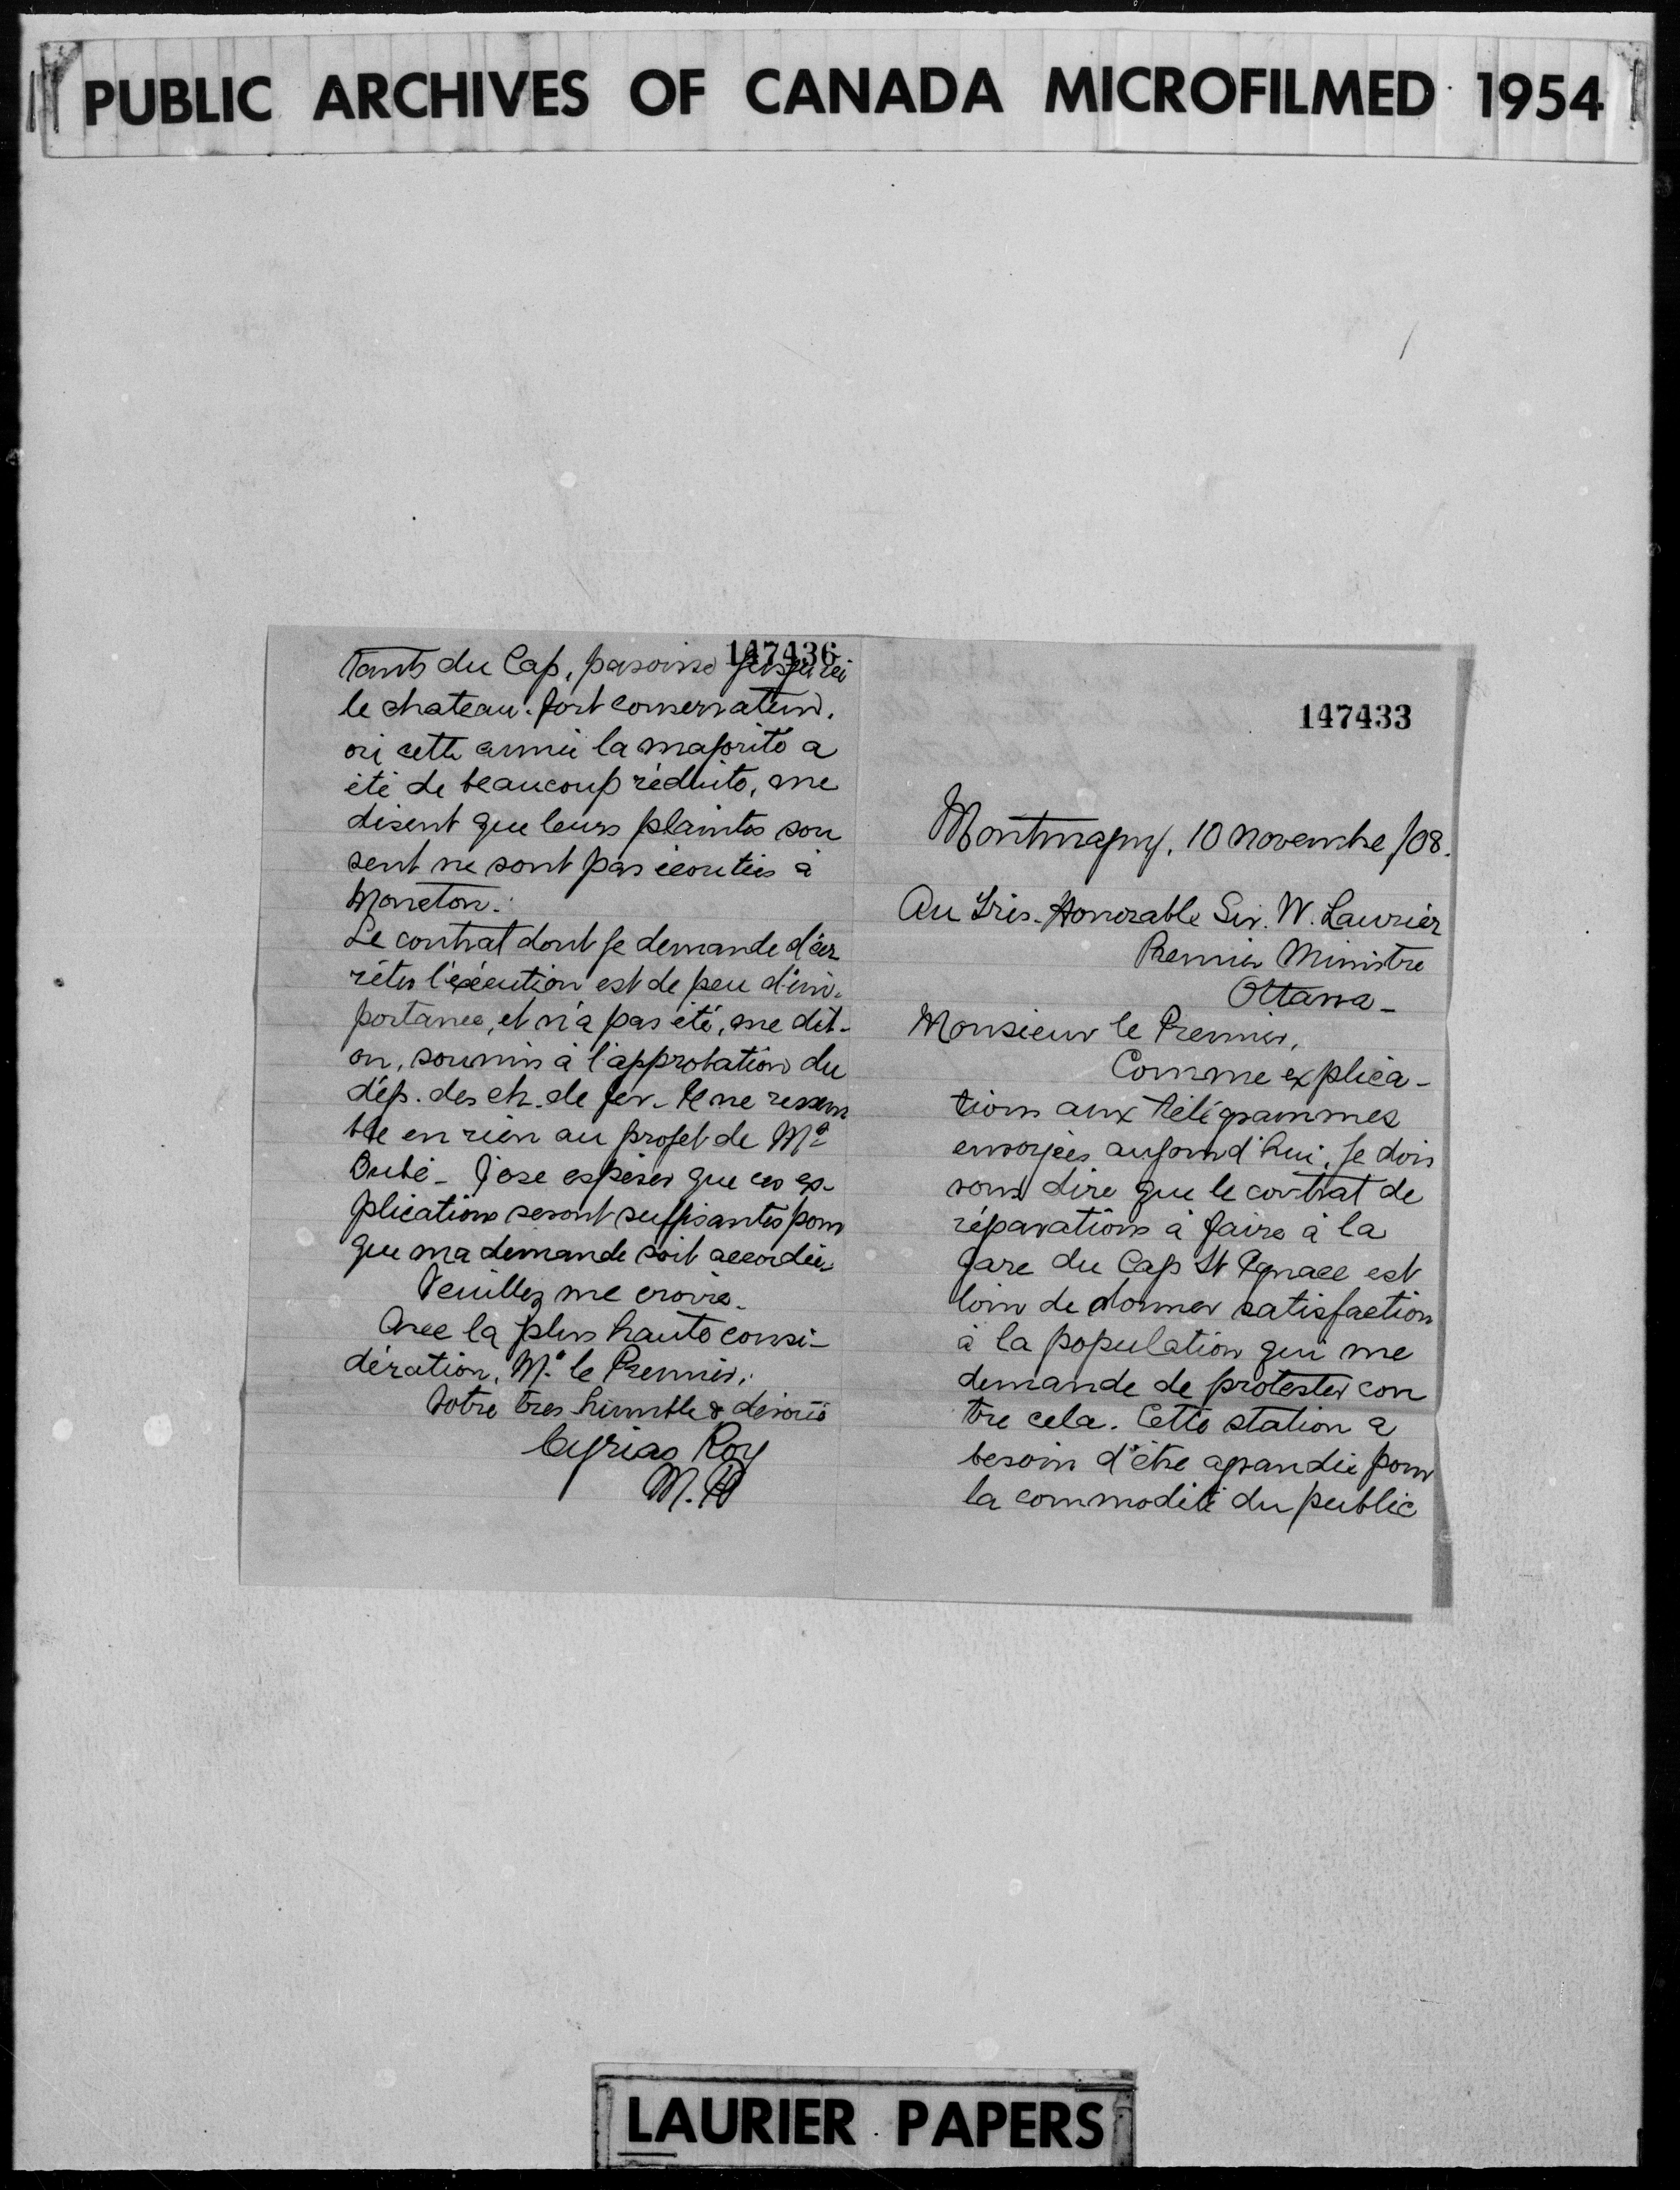 PUBLIC ARCHIVES OF CANADA MICROFILMED 1954
147436
tants du Cap, paroisse jusqu'ici
le chateau-fort conservateur,
où cette année la majorité a
été de beaucoup réduite, me
disent que leurs plaintes sou
vent ne sont pas écoutées à
Moncton.
Le contrat dont je demande d'ar
rêter l'exécution est de peu d'im-
portance, et n'a pas été, me dit-
on, soumis à l'approbation du
dép. des ch. de fer. Il ne ressem
ble en rien au projet de Mr
Dubé - J'ose espérer que ces ex-
plications seront suffisantes pour
que ma demande soit accordée.
Veuillez me croire
Avec la plus haute consi-
dération, Mr le Premier,
Votre très humble & dévoué
Cyrias Roy
M.P.
147433
Montmagny, 10 novembre /08.
Au Très-Honorable Sir. W. Laurier
Premier Ministre
Ottawa -
Monsieur le Premier,
Comme explica-
tions aux télégrammes
envoyées aujourd'hui, je dois
vous dire que le contrat de
réparations à faire à la
gare du Cap St Ignace est
loin de donner satisfaction
à la population qui me
demande de protester con
tre cela. Cette station a
besoin d'être agrandie pour
la commodité du public
LAURIER PAPERS